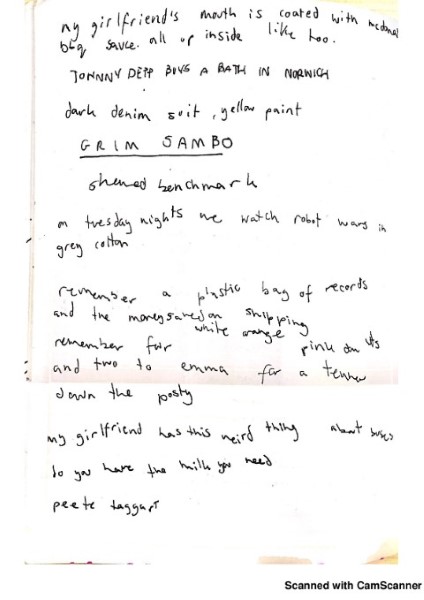 my girlfriend's mouth is coated with mcdonal
bbq sauce. all up inside like too.
JOHNNY DEPP BUYS A BATH IN NORWICH
dark denim suit, yellow paint
GRIM SAMBO
benchmark
on tuesday nights we watch robot wars in
grey cotton
remember a plastic bag of records
and the money saved on shipping
white orange
remember for pink donuts
and two to emma for a tenner
down the posty
my girlfriend has this weird thing about buses
do you have the milk you need
peete taggart
Scanned with CamScanner